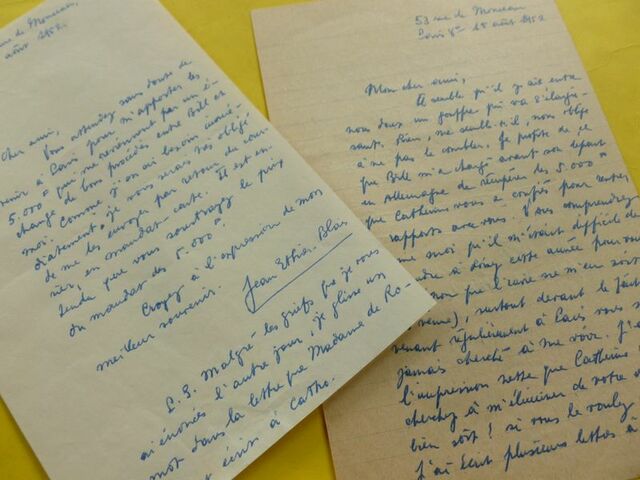 rue de Monceau,
août 1952.
Cher ami,
Vous attendez sans doute de
venir à Paris pour m'apporter les
5.000 qui me reviennent par un é-
change de bons procédés entre Bill et
moi. Comme j'en ai besoin immé-
diatement, je vous serais très obligé
de me les envoyer par retour du cour-
rier, en mandat-carte. Il est en-
tendu que vous soustrayez le prix
du mandat des 5.000
Croyez à l'expression de mon
meilleur souvenir.
Jean Ethier-Blais
P.S. Malgré les griefs que je vous
ai énoncés l'autre jour, je glisse un
mot dans la lettre que Madame de Ro-
écrit à
53 rue de Monceau
Paris 8e 15 août 1952
Mon cher ami,
Il semble qu'il y ait entre
nous deux un gouffre qui va s'élargis-
sant. Rien, me semble-t-il, nous oblige
à ne pas le combler. Je profite de ce
que Bill m'a chargé avant son départ
en Allemagne de récupérer les 5.000
que Catherine vous a confiés pour entrer
rapports avec vous. Vous comprendrez
me moi, qu'il m'était difficile de
à dîner cette année pour vous
non que l'envie ne m'en soit
venue), surtout devant le fait
venant régulièrement à Paris vous
jamais cherché à me voir. J'ai
l'impression nette que Catherine
cherchez à m'éliminer de votre
bien soit! si vous le voulez
J'ai écrit plusieurs lettres à